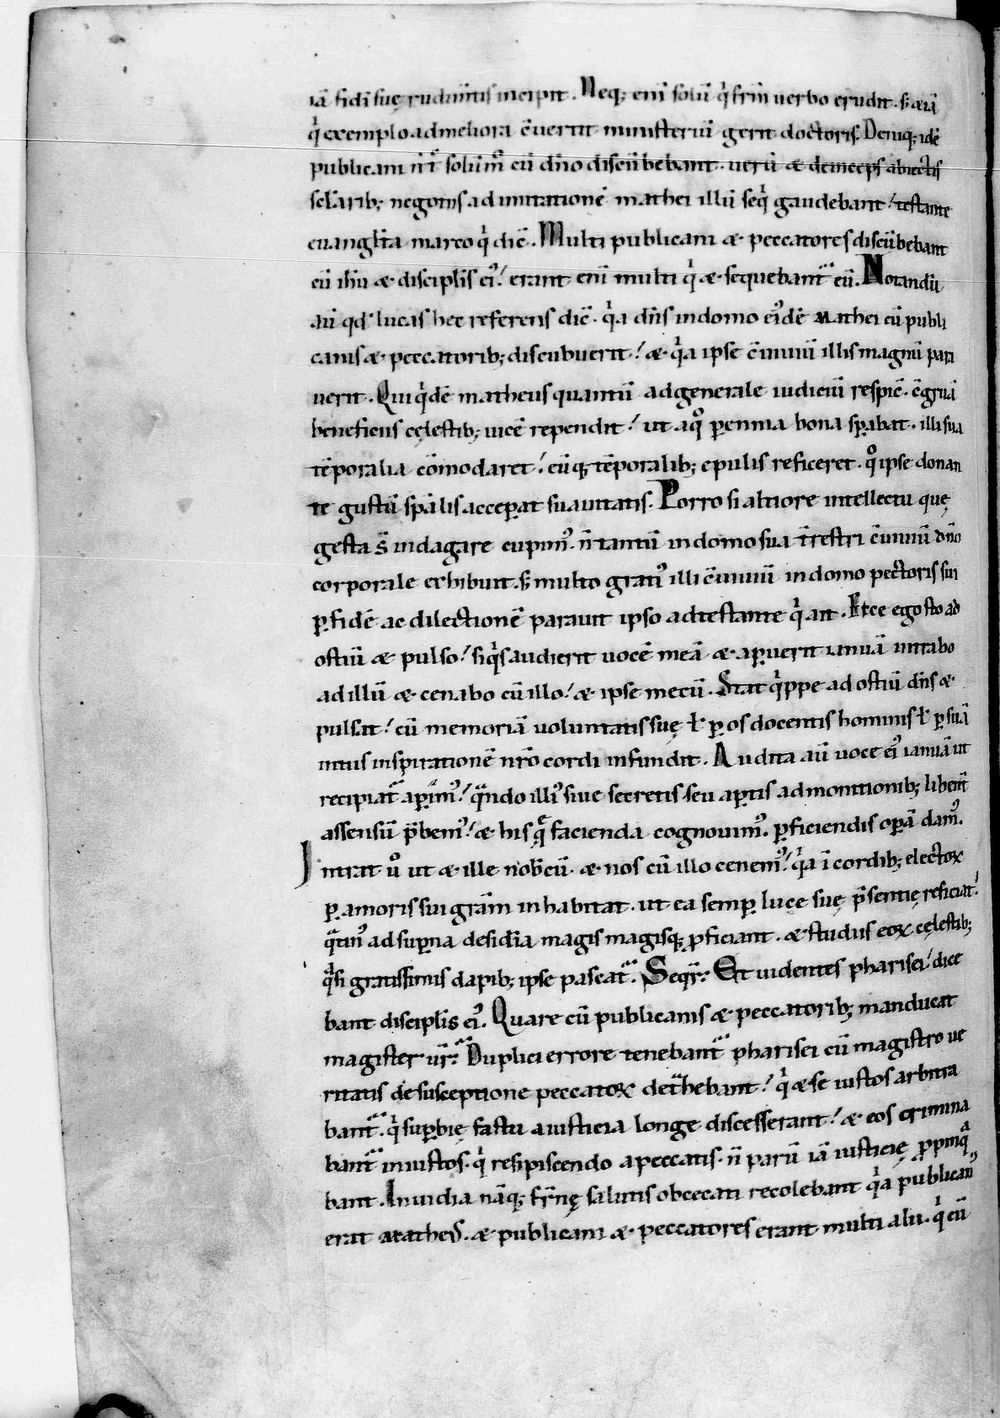 iā fidi suę rudim̄tis incipit. Neq; eni͂ solū q̇ fr̄m uerbo erudit. s; æ iā
q̇ exemplo ad meliora c̄uertit ministeriū gerit doctoris. Deniq; idē
publicani n̄ t̄ solum̄ cū dn̄o discūbebant. uerū æ deinceps abiectis
sc̄larib; negotiis ad imitationē mathei illū seq̇ gaudebant / testante
euangl̄ta marco q̇ dic̄. Multi publicani æ peccatores discūbebant
cū ihū æ discipl̄is ei᷒ / erant eni͂ multi q̇ æ sequebant᷒ eū. Notandū
aū qd̓ lucas hec referens dic̄. q̇a dn̄s in domo ei᷒dē mathei cū publi
canis æ peccatorib; discubuerit / æ q̇a ipse c̄uiuiū illis magnū para
uerit. Qui q̇dē matheus quantū ad generale iudiciū respic̄. c̄gruā
beneficiis cęlestib; uicē rependit / ut a q͛o perennia bona sp̄abat. illi sua
tēporalia cōmodaret / eūq; tēporalib; epulis reficeret. q͛o ipse donan
te gustū sp̄alis acceperat suauitatis. Porro si altiore intellectu quę
gesta s̄ indagare cupim᷒. n̄ tantū in domo sua t̄restri c̄uiuiū dn̄o
corporale exhibuit. s; multo grati᷒ illi c̄uiuiū in domo pectoris sui
ꝑ fidē ac dilectionē parauit ipso adtestante q̇ ait. Ecce ego sto ad
ostiū æ pulso / si q̇s audierit uocē meā æ aꝑuerit ianuā intrabo
ad illū æ cenabo cū illo / æ ipse mecū. Stat q̇ppe ad ostiū dn̄s æ
pulsat / cū memoriā uoluntatis suę ł ꝑ os docentis hominis ł ꝑ suā
intus inspirationē nr̄o cordi infundit. Audita aū uoce ei᷒ ianuā ut
recipiat᷒ aꝑim᷒ / q̄ndo illi᷒ siue secretis seu aꝑtis admonitionib; libent̄
assensū p̄bem᷒ / æ his q̄ facienda cognouim᷒. ꝑficiendis oꝑā dam᷒.
Intrat u͛o ut æ ille nob̄cū. æ nos cū illo cenem᷒ / q̇a ī cordib; electoꝝ
ꝑ amoris sui grām inhabitat. ut ea semꝑ luce suę p̄sentię reficiat /
q̄tin᷒ ad suꝑna desid̄ia magis magisq; ꝓficiant. æ studiis eoꝝ cęlestib;
q̇si gratissimis dapib; ipse pascat᷒. Seqr̄. Et uidentes pharisei / dice
bant discipl̄is ei᷒. Quare cū publicanis æ peccatorib; manducat
magister ur̄. Duplici errore tenebant᷒ pharisei cū magistro ue
ritatis de susceptione peccatoꝝ det̄hebant / q̇ æ se iustos arbitra
bant᷒. q̇ suꝑbię fastu a iusticia longe discesserant / æ eos crimina
bant᷒ iniustos. q̇ resipiscendo a peccatis. n̄ parū iā iusticię ꝓpinq̄
bant. Inuidia nāq; fr̄nę salutis obcecati recolebant q̇a publican᷒
erat matheus. æ publicani æ peccatores erant multi alii. q̇ cū